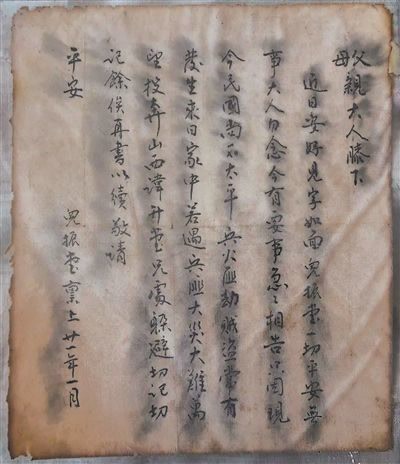 父母親大人膝下
近日安好見字如面兒振堂一切平安無
事大人勿念今有要事急々相告只因現
今民國尚不太平兵火匪劫賊盜常有
發生來日家中若遇兵匪大災大難萬
望投奔山西譚升堂兄處躲避切記切
記餘俟再書以續敬請
平安
兒振堂禀上廿一年一月